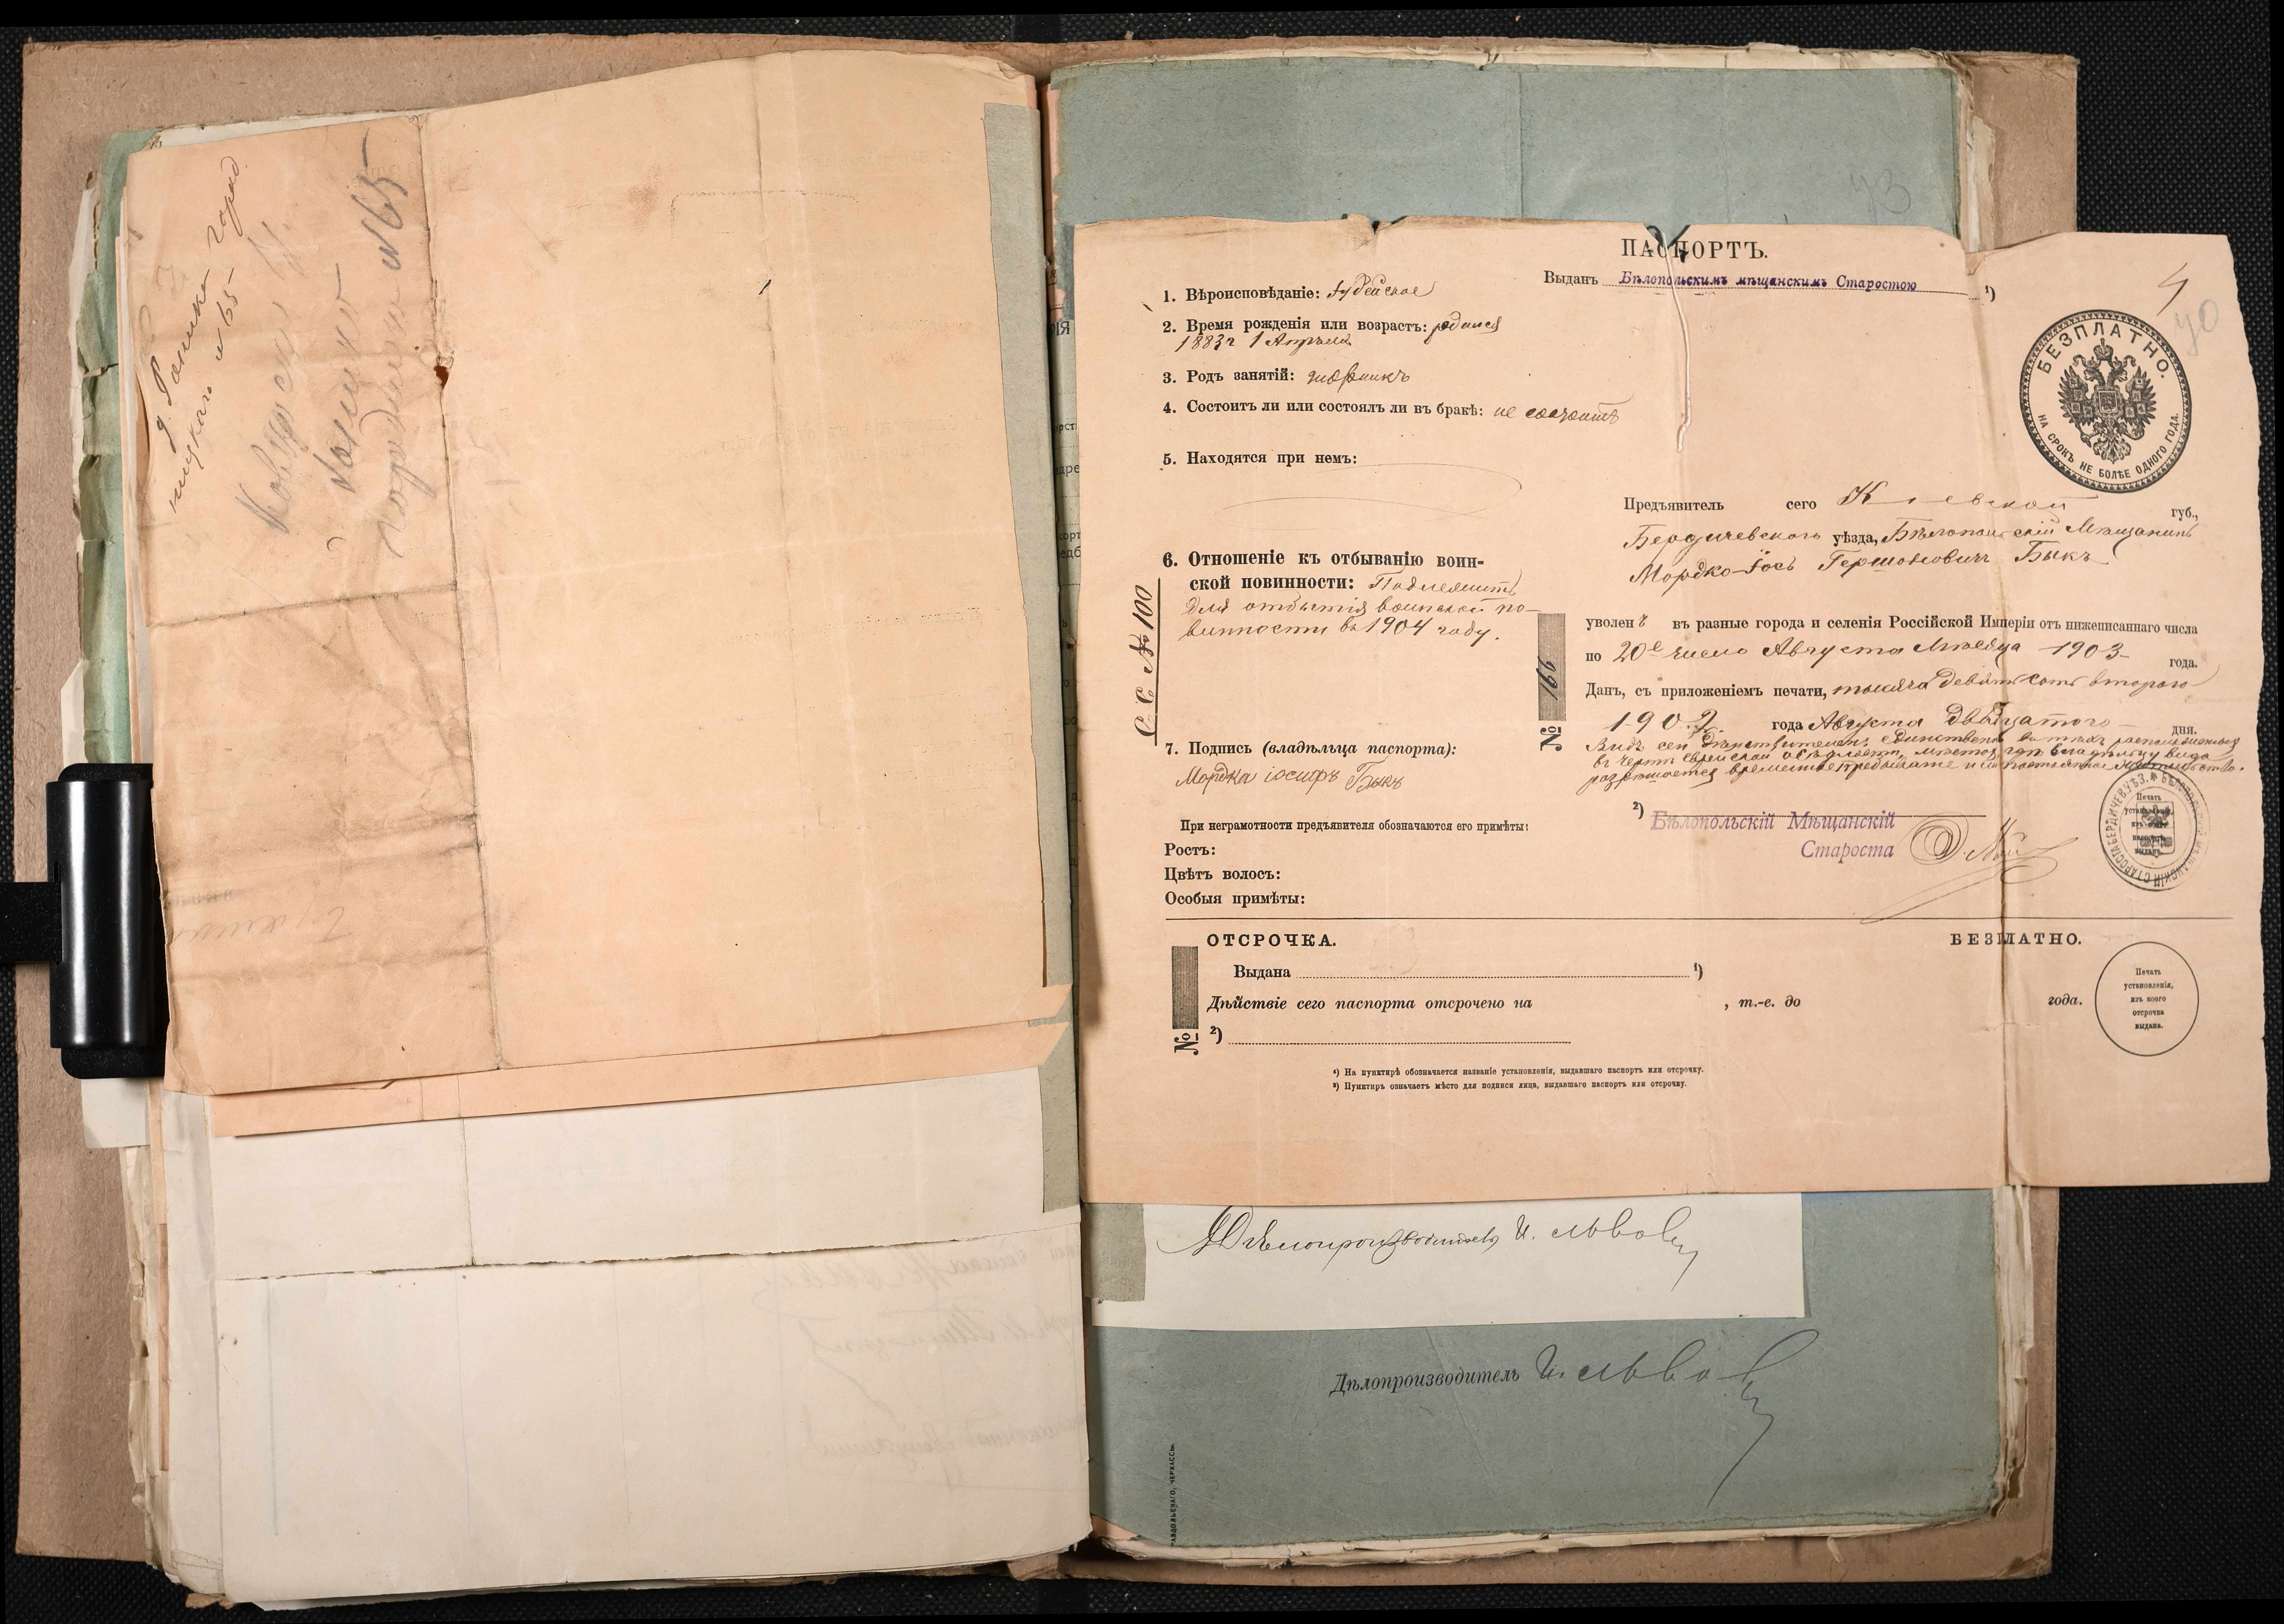 д. Ромишка город
№ 65
№ 65
43
4
40
ПАСПОРТЪ.
Выданъ Бѣлопольскимъ мѣщанскимъ Старостою ¹)
БЕЗПЛАТНО.
НА СРОКЪ НЕ БОЛѢЕ ОДНОГО ГОДА.
1. Вѣроисповѣданіе: Іудейское
2. Время рожденія или возрастъ: родился
1883 г 1 Апрѣля
3. Родъ занятій:
4. Состоитъ ли или состоялъ ли въ бракѣ: не состоитъ
5. Находятся при немъ:
6. Отношеніе къ отбыванію воин-
ской повинности: Подлежитъ
для отбытія воинской по-
винности въ 1904 году.
С. С. № 100
7. Подпись (владѣльца паспорта):
Мордка іосифъ Быкъ
При неграмотности предъявителя обозначаются его примѣты:
Ростъ:
Цвѣтъ волосъ:
Особыя примѣты:
№ 166
Предъявитель сего Кіевской губ.,
Бердичевскаго уѣзда, Бѣлопольскій Мѣщанинъ
Мордко-Іось Гершоновичъ Быкъ
уволенъ въ разные города и селенія Россійской Имперіи отъ нижеписаннаго числа
по 20е число Августа Мѣсяца 1903 года.
Данъ, съ приложеніемъ печати, тысяча девятьсотъ второго
1902 года Августа двадцатого дня.
Видъ сей дѣйствителенъ единственно въ
въ чертѣ еврейской осѣдлости, мѣстъ, гдѣ владѣльцу вида
разрѣшается временное пребываніе и постоянное жительство.
²) Бѣлопольскій Мѣщанскій
Староста
Печать
установленія,
изъ коего
паспортъ
выданъ.
ОТСРОЧКА.
БЕЗПЛАТНО.
Выдана ¹)
Дѣйствіе сего паспорта отсрочено на , т.-е. до года.
№ ²)
Печать
установленія,
изъ коего
отсрочка
выдана.
¹) На пунктирѣ обозначается названіе установленія, выдавшаго паспортъ или отсрочку.
²) Пунктиръ означаетъ мѣсто для подписи лица, выдавшаго паспортъ или отсрочку.
Дѣлопроизводитель И. Львовъ
Дѣлопроизводитель И. Львовъ